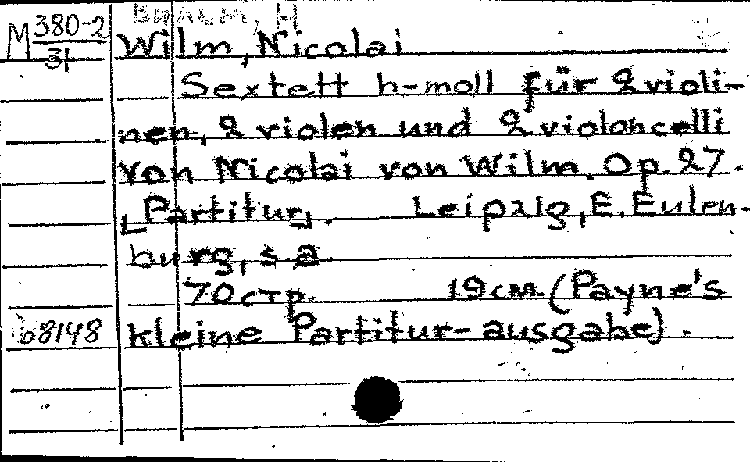 Вильм, Н
M 380-2
31
Wilm, Nicolai
Sextett h-moll für 2 violi-
nen, 2 violen und 2 violoncelli
von Nicolai von Wilm. Op. 27.
[Partitur]. Leipzig, E. Eulen-
burg, s a
70 стр. 19 см. (Payne's
kleine Partitur-ausgabe).
68148